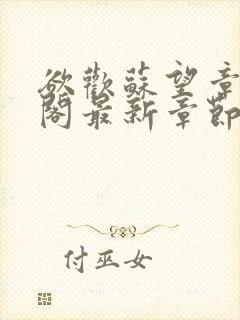 欲歡蘇望章
閣最新章節
付巫女